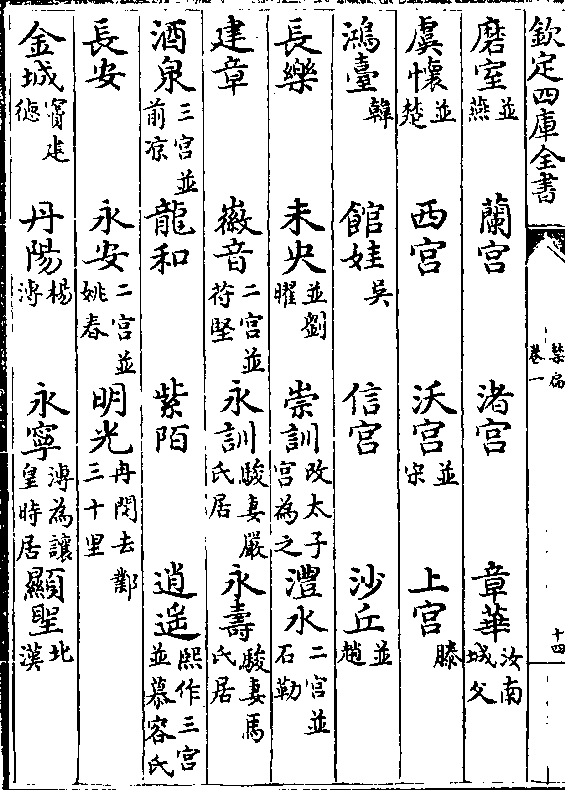 欽定四庫全書
禁扁
卷一
十四
磨室並燕 蘭宮 渚宮 章華汝南城父
虞懷並楚 西宮 沃宮並宋 上宮滕
鴻臺韓 館娃吳 信宮 沙丘並趙
長樂 未央並劉曜 崇訓改太子宮為之 澧水二宮並石勒
建章 徽音二宮並苻堅 永訓駿妻嚴氏居 永壽駿妻馬氏居
酒泉三宮並前凉 龍和 紫陌 逍遥熙作三宮並慕容氏
長安 永安二宮並姚春 明光冉閔去鄴三十里
金城竇建德 丹陽楊溥 永寧溥為讓皇時居 顯聖北漢